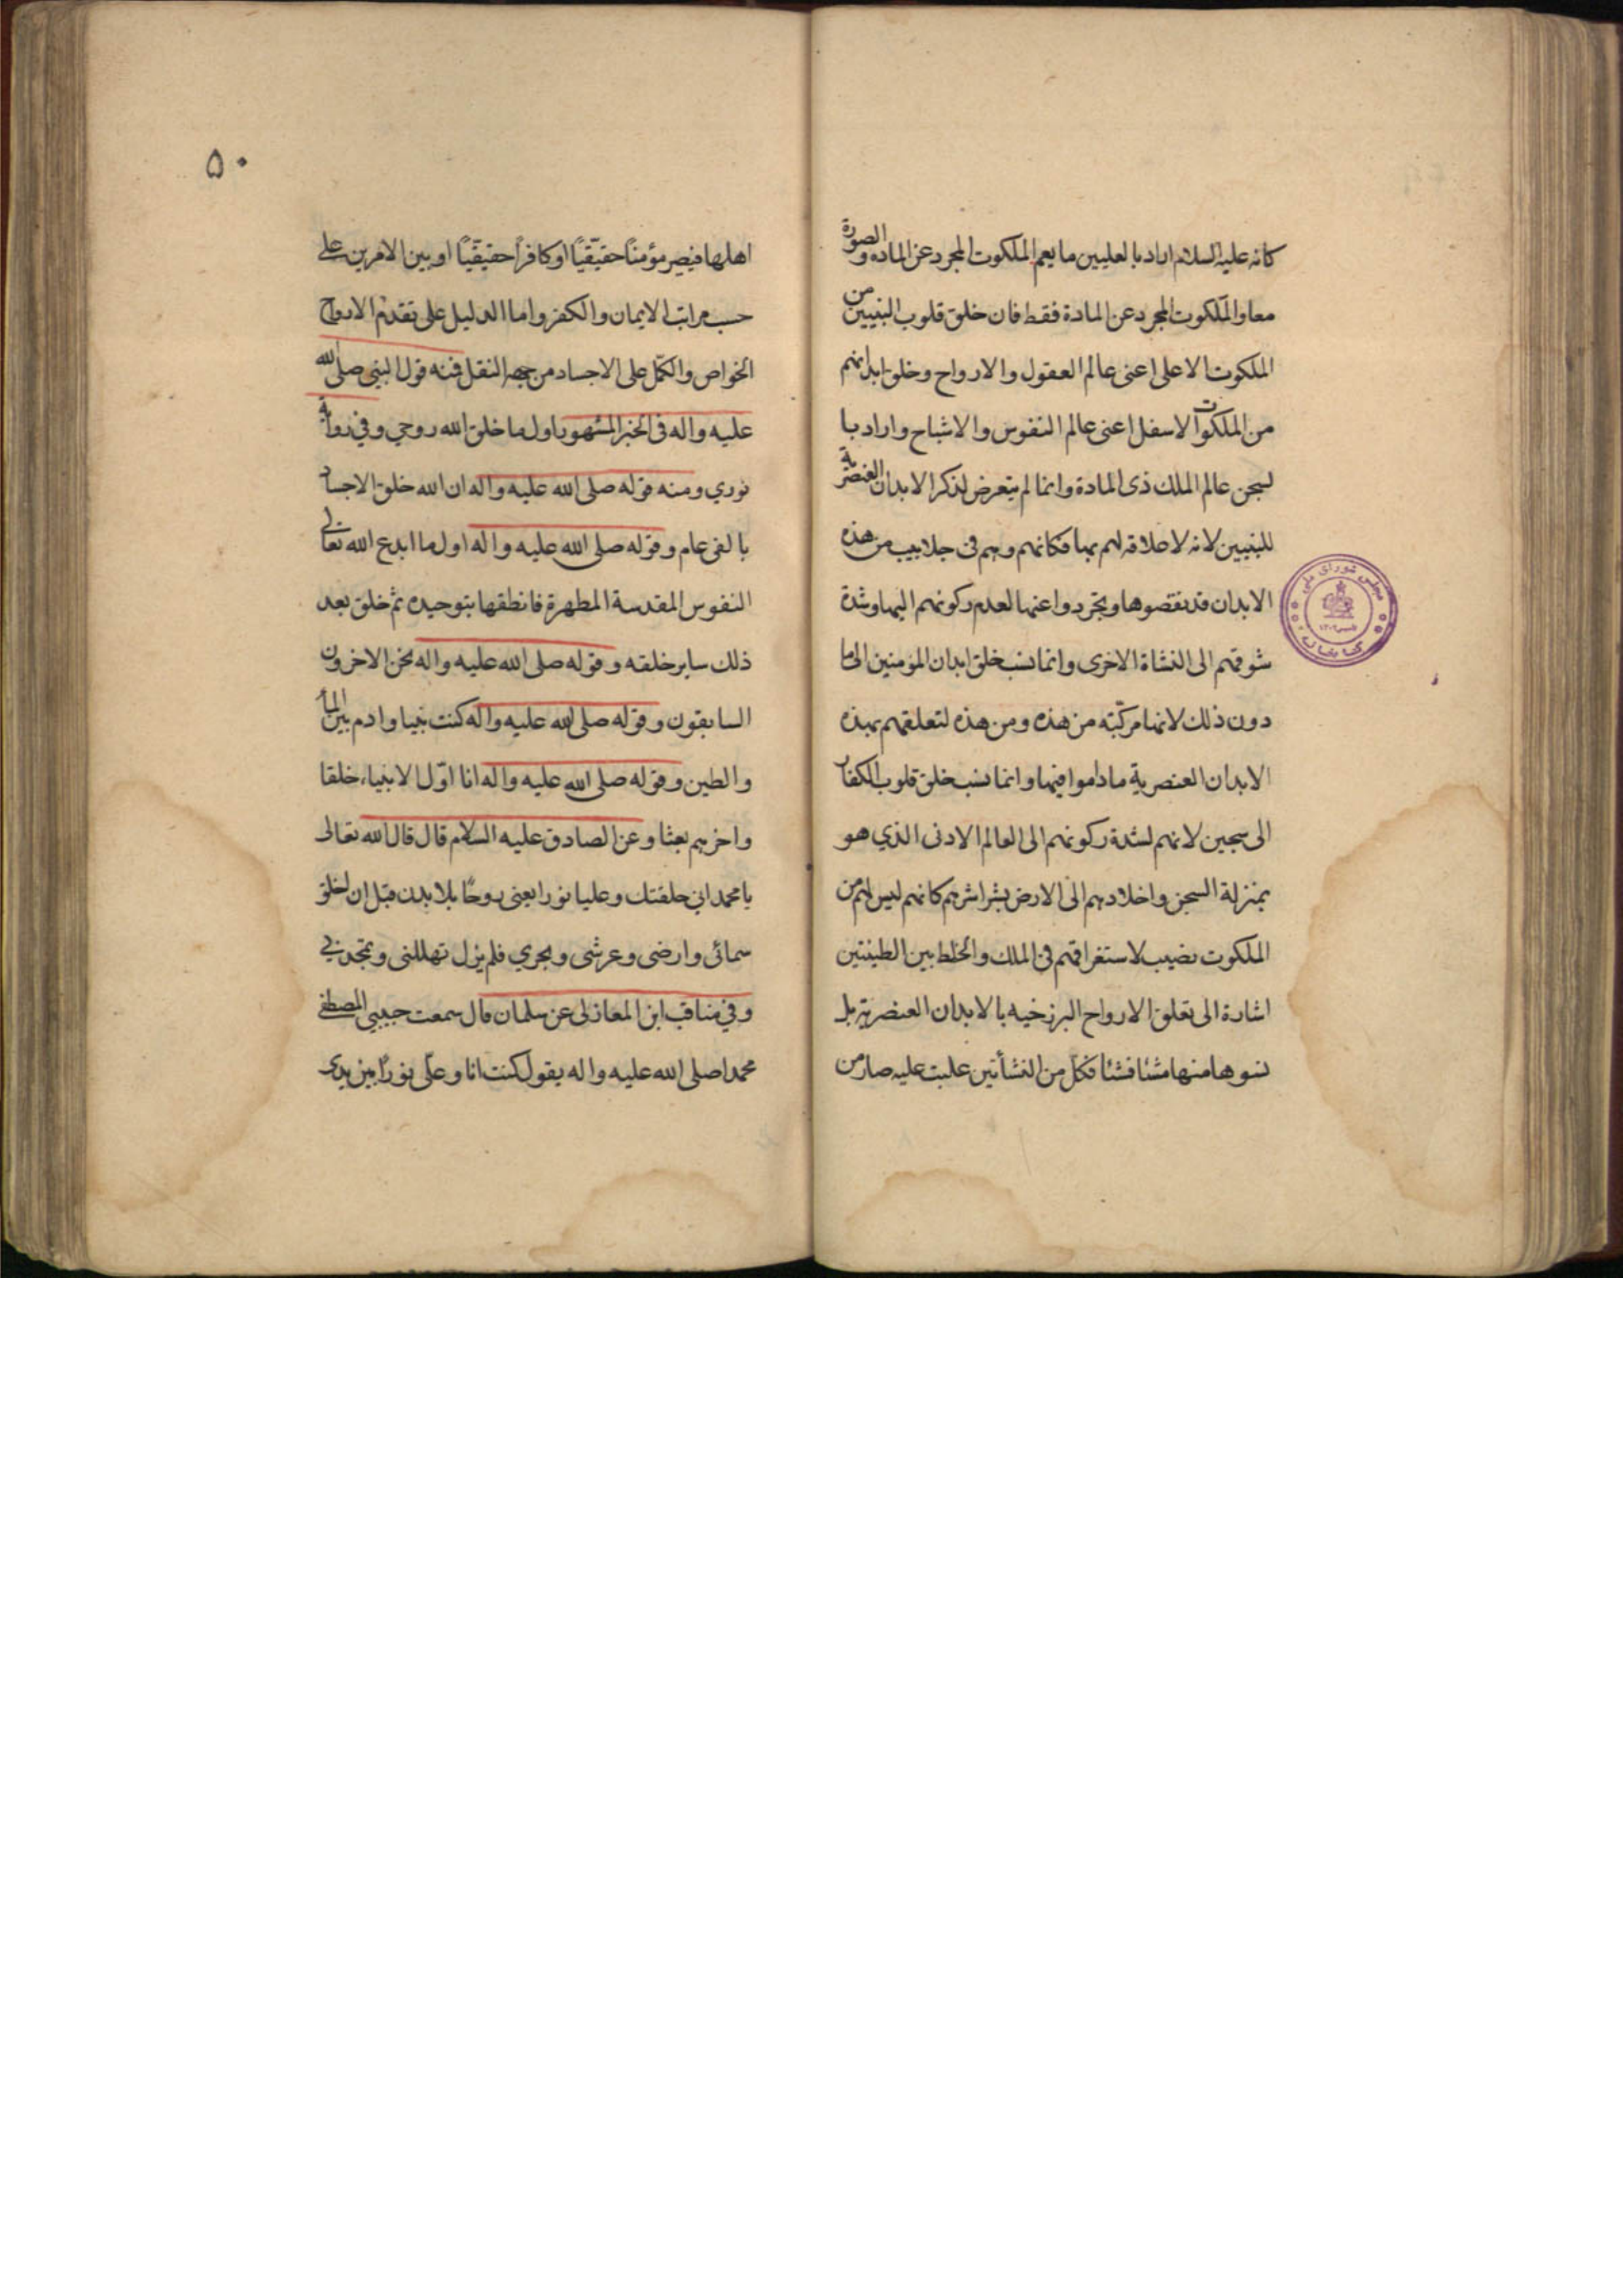 كانه عليه السلام اراد بالعليين ما يعم الملكوت المجرد عن المادة والصورة
معا والملكوت المجرد عن المادة فقط فان خلق قلوب النبيين من
الملكوت الاعلى اعنى عالم العقول والارواح وخلق ابدانهم
من الملكوت الاسفل اعنى عالم النفوس والاشباح واراد با
لسجن عالم الملك ذى المادة وانما لم يتعرض لذكر الابدان العنصرية
للنبيين لانه لا علاقة لهم بها فكانهم وهم فى جلابيب من هذه
الابدان قد نقضوها وتجردوا عنها لعدم ركونهم اليها وشدة
شوقهم الى النشاة الاخرى وانما نسب خلق ابدان المؤمنين الى ما
دون ذلك لانها مركبة من هذه ومن هذه لتعلقهم بهذه
الابدان العنصرية ما داموا فيها وانما نسب خلق قلوب الكفار
الى سجين لانهم لشدة ركونهم الى العالم الادنى الذي هو
بمنزلة السجن واخلادهم الى الارض بشراشرهم كانهم ليس لهم من
الملكوت نصيب لاستغراقهم فى الملك والخلط بين الطينتين
اشارة الى تعلق الارواح البرزخيه بالابدان العنصرية بل
نشوها منها شئا فشئا فكل من النشأتين غلبت عليه صار من
۵۰
اهلها فيصير مؤمنًا حقيقيًا او كافرًا حقيقيًا او بين الامرين على
حسب مراتب الايمان والكفر واما الدليل على تقدم الارواح
الخواص والكمل على الاجساد من جهة النقل فمنه قول النبى صلى الله
عليه واله فى الخبر المشهور اول ما خلق الله روحي وفي رواية
نوري ومنه قوله صلى الله عليه واله ان الله خلق الاجساد
بالفى عام وقوله صلى الله عليه واله اول ما ابدع الله تعالى
النفوس المقدسة المطهرة فانطقها بتوحيده ثم خلق بعد
ذلك ساير خلقه وقوله صلى الله عليه واله نحن الاخرون
السابقون وقوله صلى الله عليه واله كنت نبيا وادم بين الماء
والطين وقوله صلى الله عليه واله انا اوّل الانبياء خلقا
واخرهم بعثا وعن الصادق عليه السلام قال قال الله تعالى
يا محمد اني خلقتك وعليا نورا يعنى روحًا بلا بدن قبل ان اخلق
سمائى وارضى وعرشى وبحري فلم يزل تهللنى وتمجدنى
وفي مناقب ابن المغازلى عن سلمان قال سمعت حبيبي المصطفى
محمدا صلى الله عليه واله يقول كنت انا وعلى نورًا بين يدى